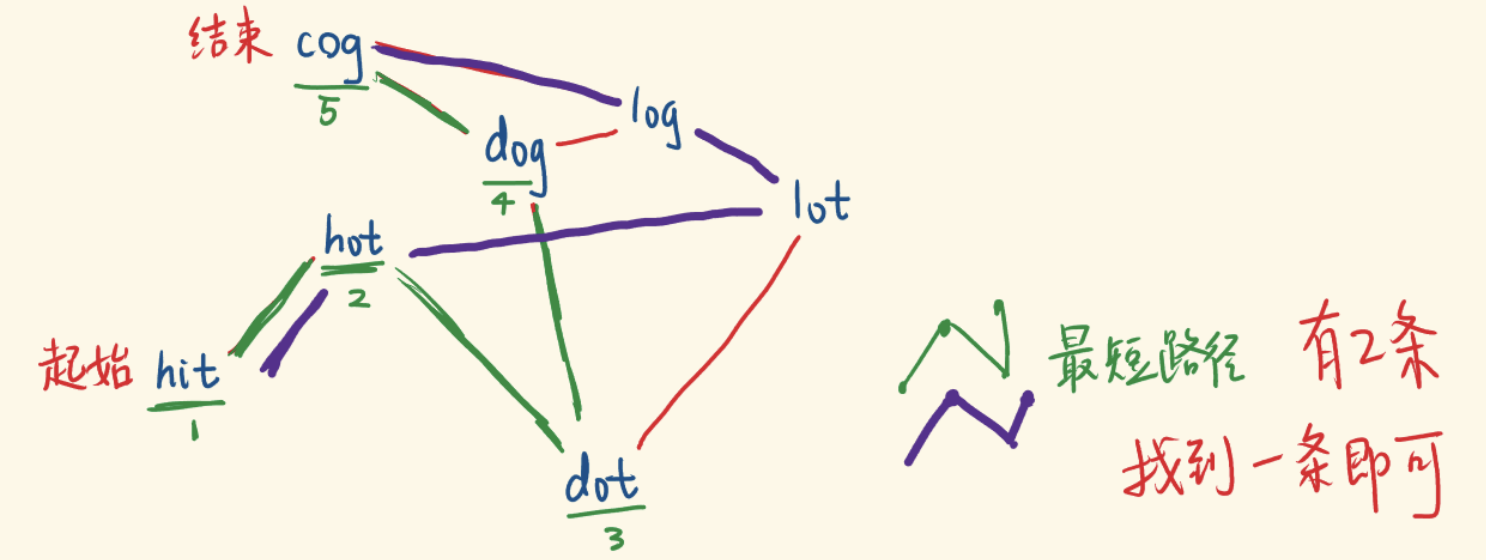 结束 cog
5
log
dog
4
lot
hot
2
起始 hit
1
最短路径 有2条
找到一条即可
dot
3